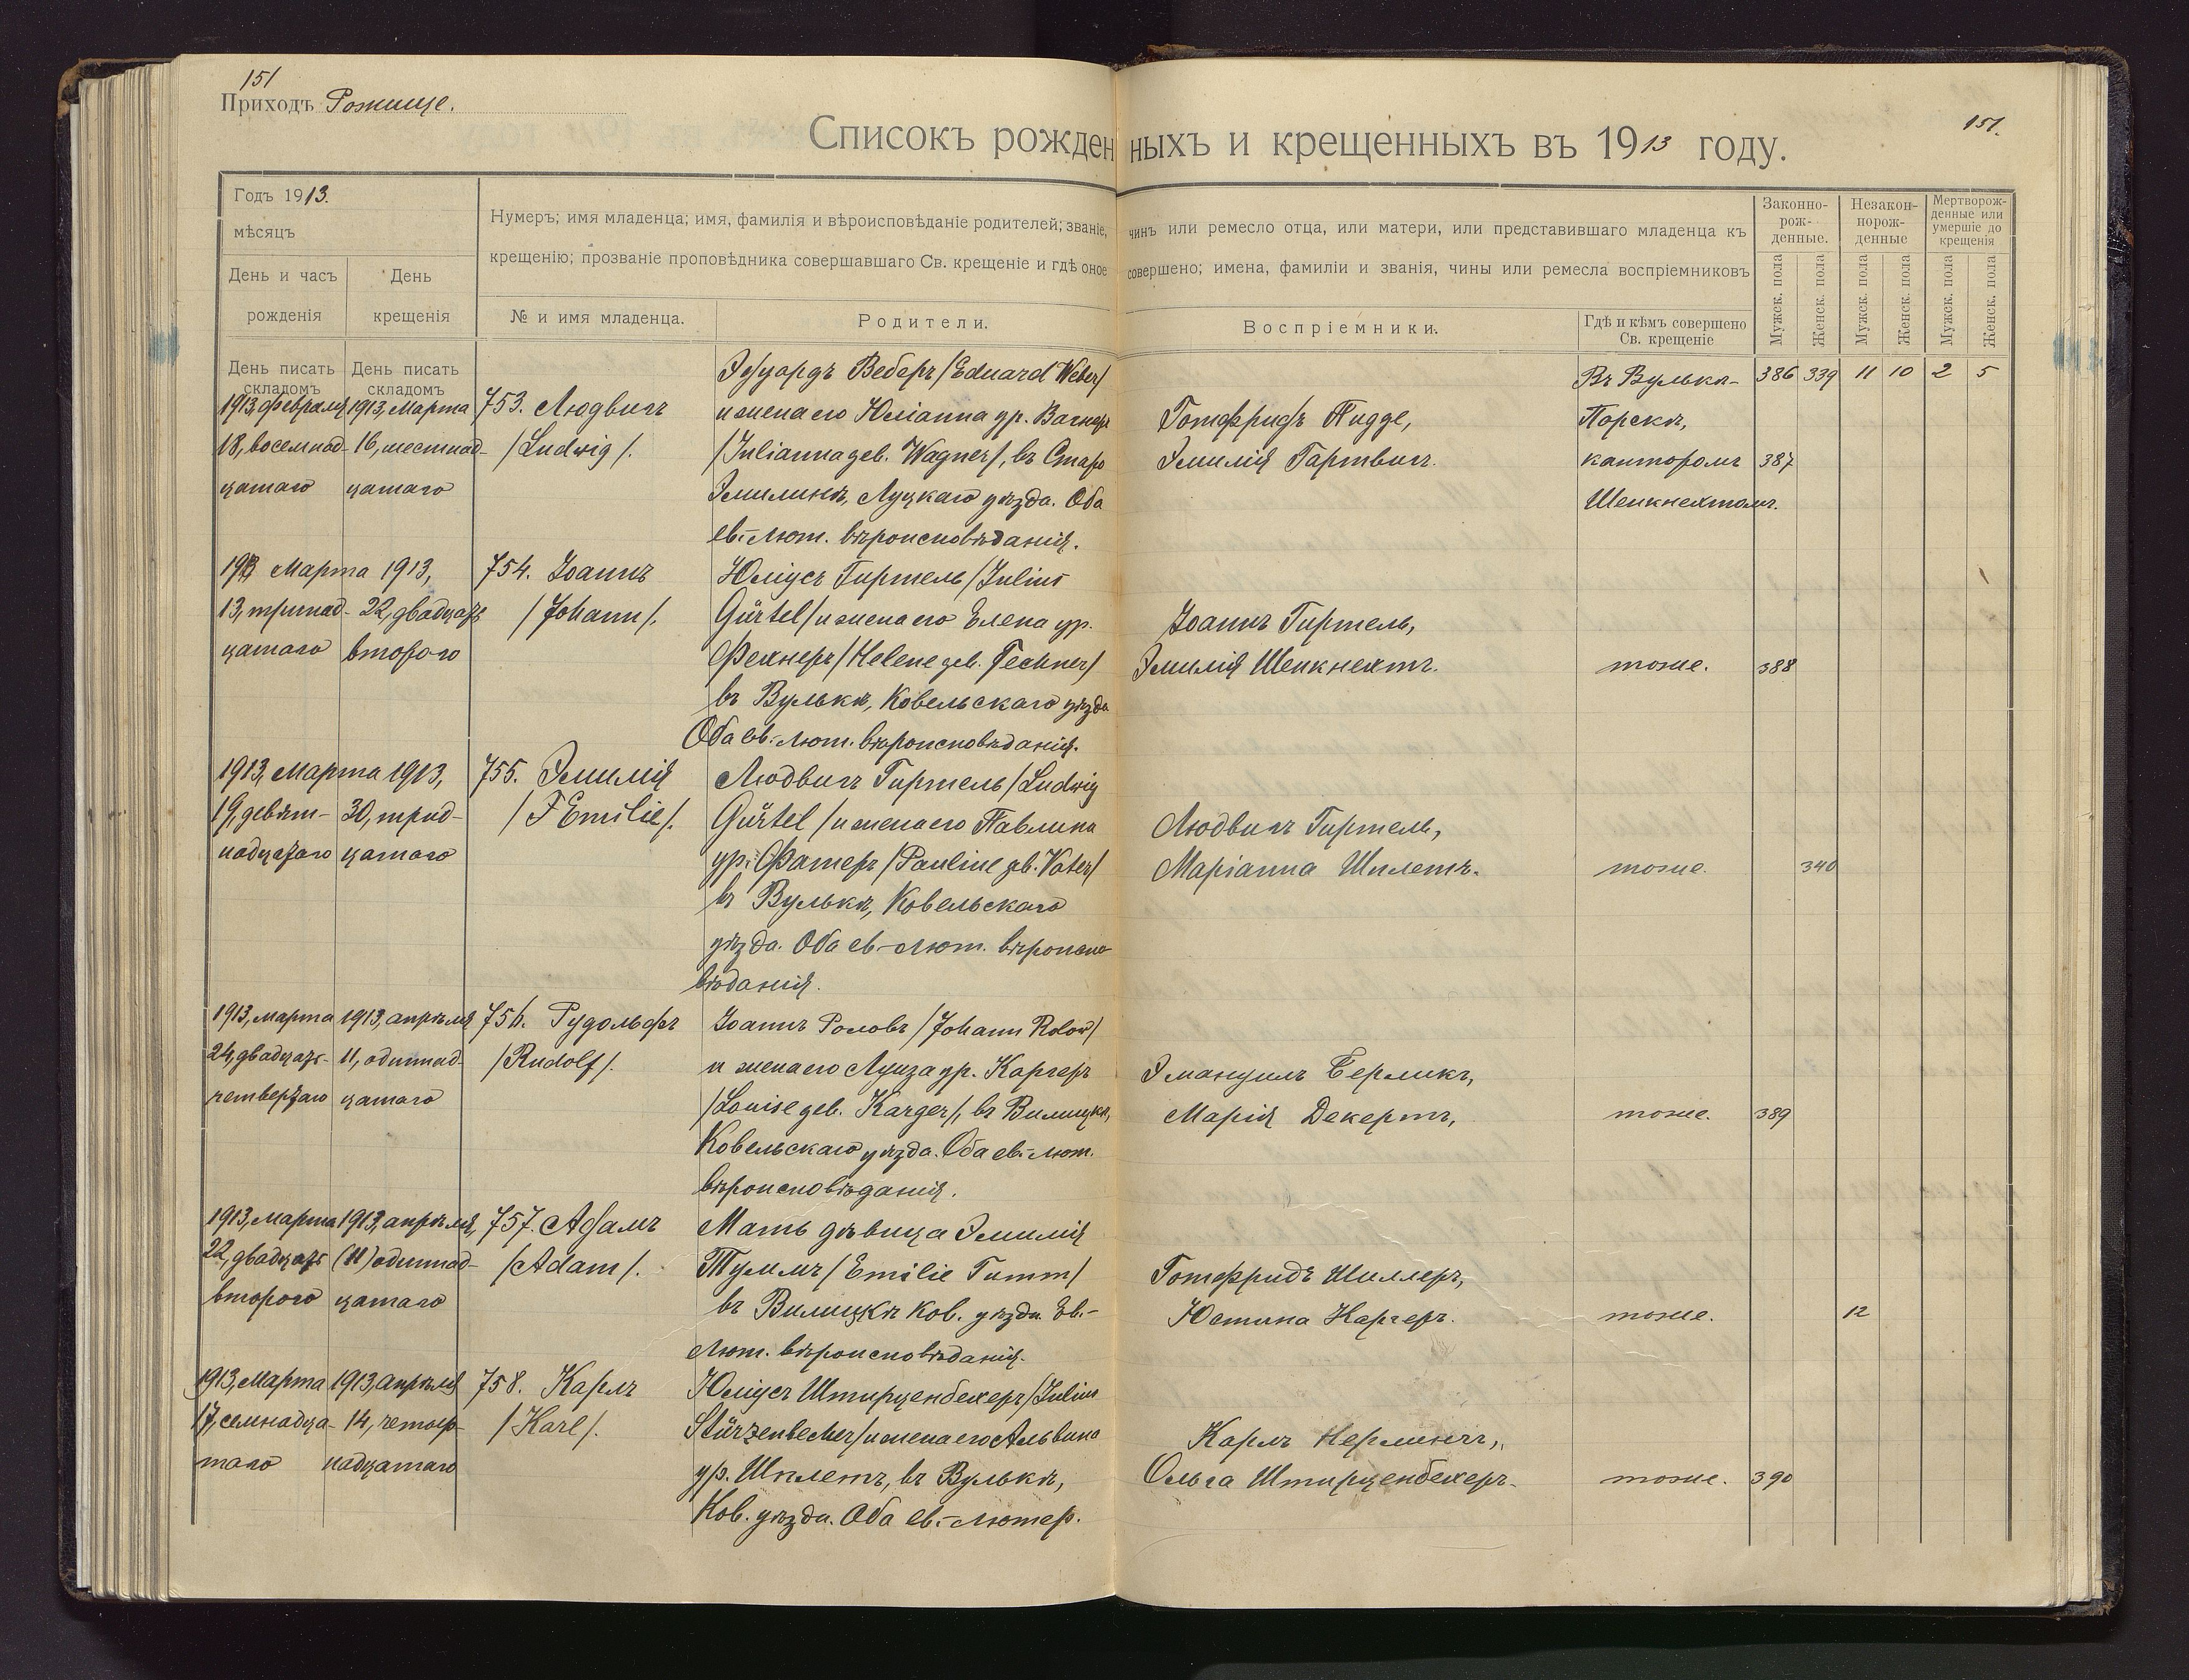 151
Приходъ Рожище.
151.
Списокъ рожденныхъ и крещенныхъ въ 1913 году.
Годъ 1913.
мѣсяцъ
День и часъ
рожденія
День
крещенія
Нумеръ; имя младенца; имя, фамилія и вѣроисповѣданіе родителей; званіе, чинъ или ремесло отца, или матери, или представившаго младенца къ
крещенію; прозваніе проповѣдника совершавшаго Св. крещеніе и гдѣ оное совершено; имена, фамиліи и званія, чины или ремесла воспріемниковъ
№ и имя младенца.
Родители.
Воспріемники.
Гдѣ и кѣмъ совершено
Св. крещеніе
Законно-
рож-
денные.
Незакон-
норож-
денные
Мертворож-
денные или
умершіе до
крещенія
Мужск. пола
Женск. пола
Мужск. пола
Женск. пола
Мужск. пола
Женск. пола
День писать
складомъ
День писать
складомъ
386 339 11 10 2 5
1913, февраля
18, восемнад-
цатаго
1913, Марта
16, шестнад-
цатаго
753. Людвигъ
/Ludwig/.
Эдуардъ Веберъ /Eduard Weber/
и жена его Юліанна ур. Вагнеръ
/Julianna geb. Wagner/, въ Старо
Эмилинѣ, Луцкаго уѣзда. Оба
ев.-лют. вѣроисповѣданія.
Готфридъ Пидде,
Эмилія Гартвигъ.
Въ Вулька-
Порскѣ,
канторомъ
Шенкнехтомъ.
387
1913 Марта
13, тринад-
цатаго
1913,
22, двадцать
второго
754. Іоаннъ
/Johann/.
Юліусъ Гиртель /Julius
Gürtel/ и жена его Елена ур.
Фехнеръ /Helene geb. Fechner/
въ Вулькѣ, Ковельскаго уѣзда
Оба ев.-лют. вѣроисповѣданія.
Іоаннъ Гиртель,
Эмилія Шенкнехтъ.
тоже.
388
1913, Марта
19, девят-
надцатаго
1913,
30, трид-
цатаго
755. Эмилія
/Emilie/.
Людвигъ Гиртель /Ludwig
Gürtel/ и жена его Павлина
ур. Фатеръ /Pauline gb. Vater/
въ Вулькѣ, Ковельскаго
уѣзда. Оба ев.-лют. вѣроиспо
вѣданія.
Людвигъ Гиртель,
Маріанна Шплетъ.
тоже.
340
1913, марта
24, двадцать-
четвертаго
1913, апрѣля
11, одиннад-
цатаго
756. Рудольфъ
/Rudolf/.
Іоаннъ Роловъ /Johann Rolow/
и жена его Луиза ур. Каргеръ
/Louise geb. Karger/, въ Вилицкѣ,
Ковельскаго уѣзда. Оба ев.-лют.
вѣроисповѣданія.
Эмануилъ Берликъ,
Марія Декертъ,
тоже.
389
1913, марта
22, двадцать
второго
1913, апрѣля,
(11) одиннад-
цатаго
757. Адамъ
/Adam/.
Мать дѣвица Эмилія
Туммъ /Emilie Tumm/
въ Вилицкѣ Ков. уѣзда. Ев.-
Лют. вѣроисповѣданія.
Готфридъ Шиллеръ,
Юстина Каргеръ.
тоже.
12
1913, Марта
17, семнадца-
таго
1913, Апрѣля
14, четыр-
надцатаго
758. Карлъ
/Karl/.
Юліусъ Штирценбехеръ /Julius
Stürzenbecher/ и жена его Альвина
ур. Шплетъ, въ Вулькѣ,
Ков. уѣзда. Оба ев.-лютер.
Карлъ Нерлингъ,
Ольга Штирценбехеръ.
тоже.
390